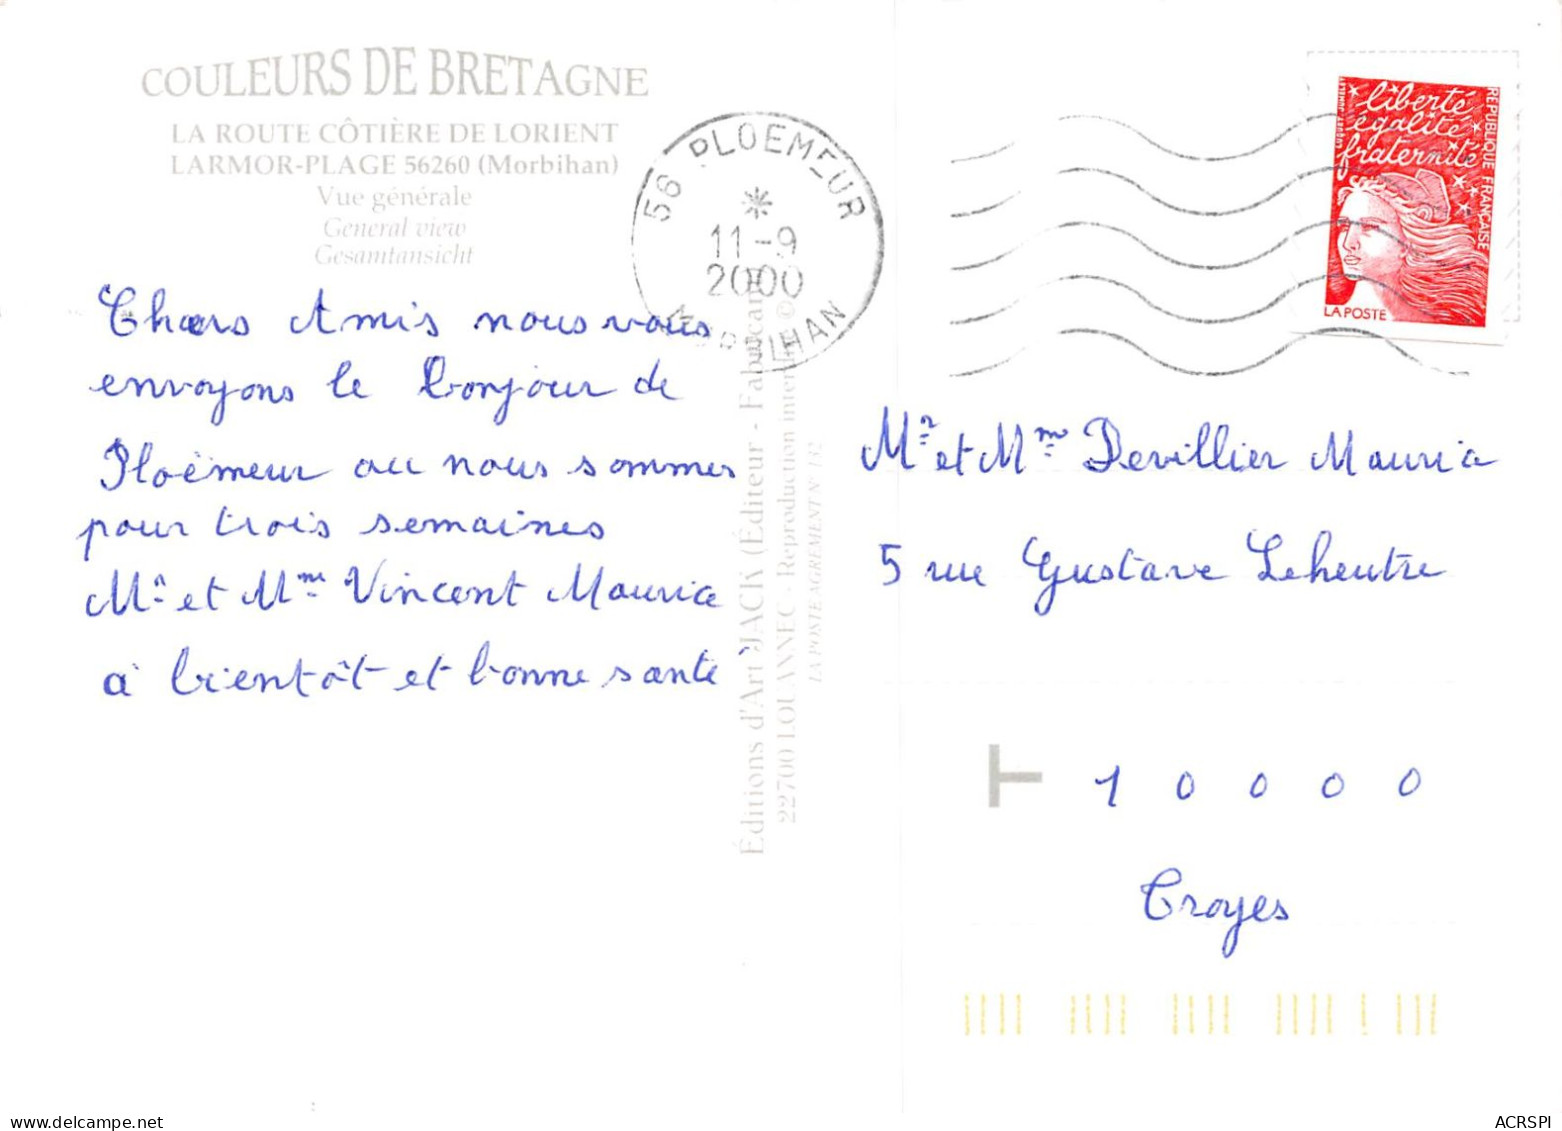 COULEURS DE BRETAGNE
LA ROUTE CÔTIÈRE DE LORIENT
LARMOR-PLAGE 56260 (Morbihan)
Vue générale
General view
Gesamtansicht
Chers Amis nous vous
envoyons le bonjour de
Ploëmeur ou nous sommes
pour trois semaines
Mr et Mme Vincent Maurice
à bientôt et bonne santé
56 PLOEMEUR
11-9
2000
MORBIHAN
Éditions d'Art JACK (Éditeur - Fabricant)
22700 LOUANNEC - Reproduction interdite ©
LA POSTE AGREMENT N° 132
liberté
égalité
fraternité
RÉPUBLIQUE FRANÇAISE
LA POSTE
Mr et Mme Devillier Maurice
5 rue Gustave Leheutre
T 10000
Troyes
ACRSPI